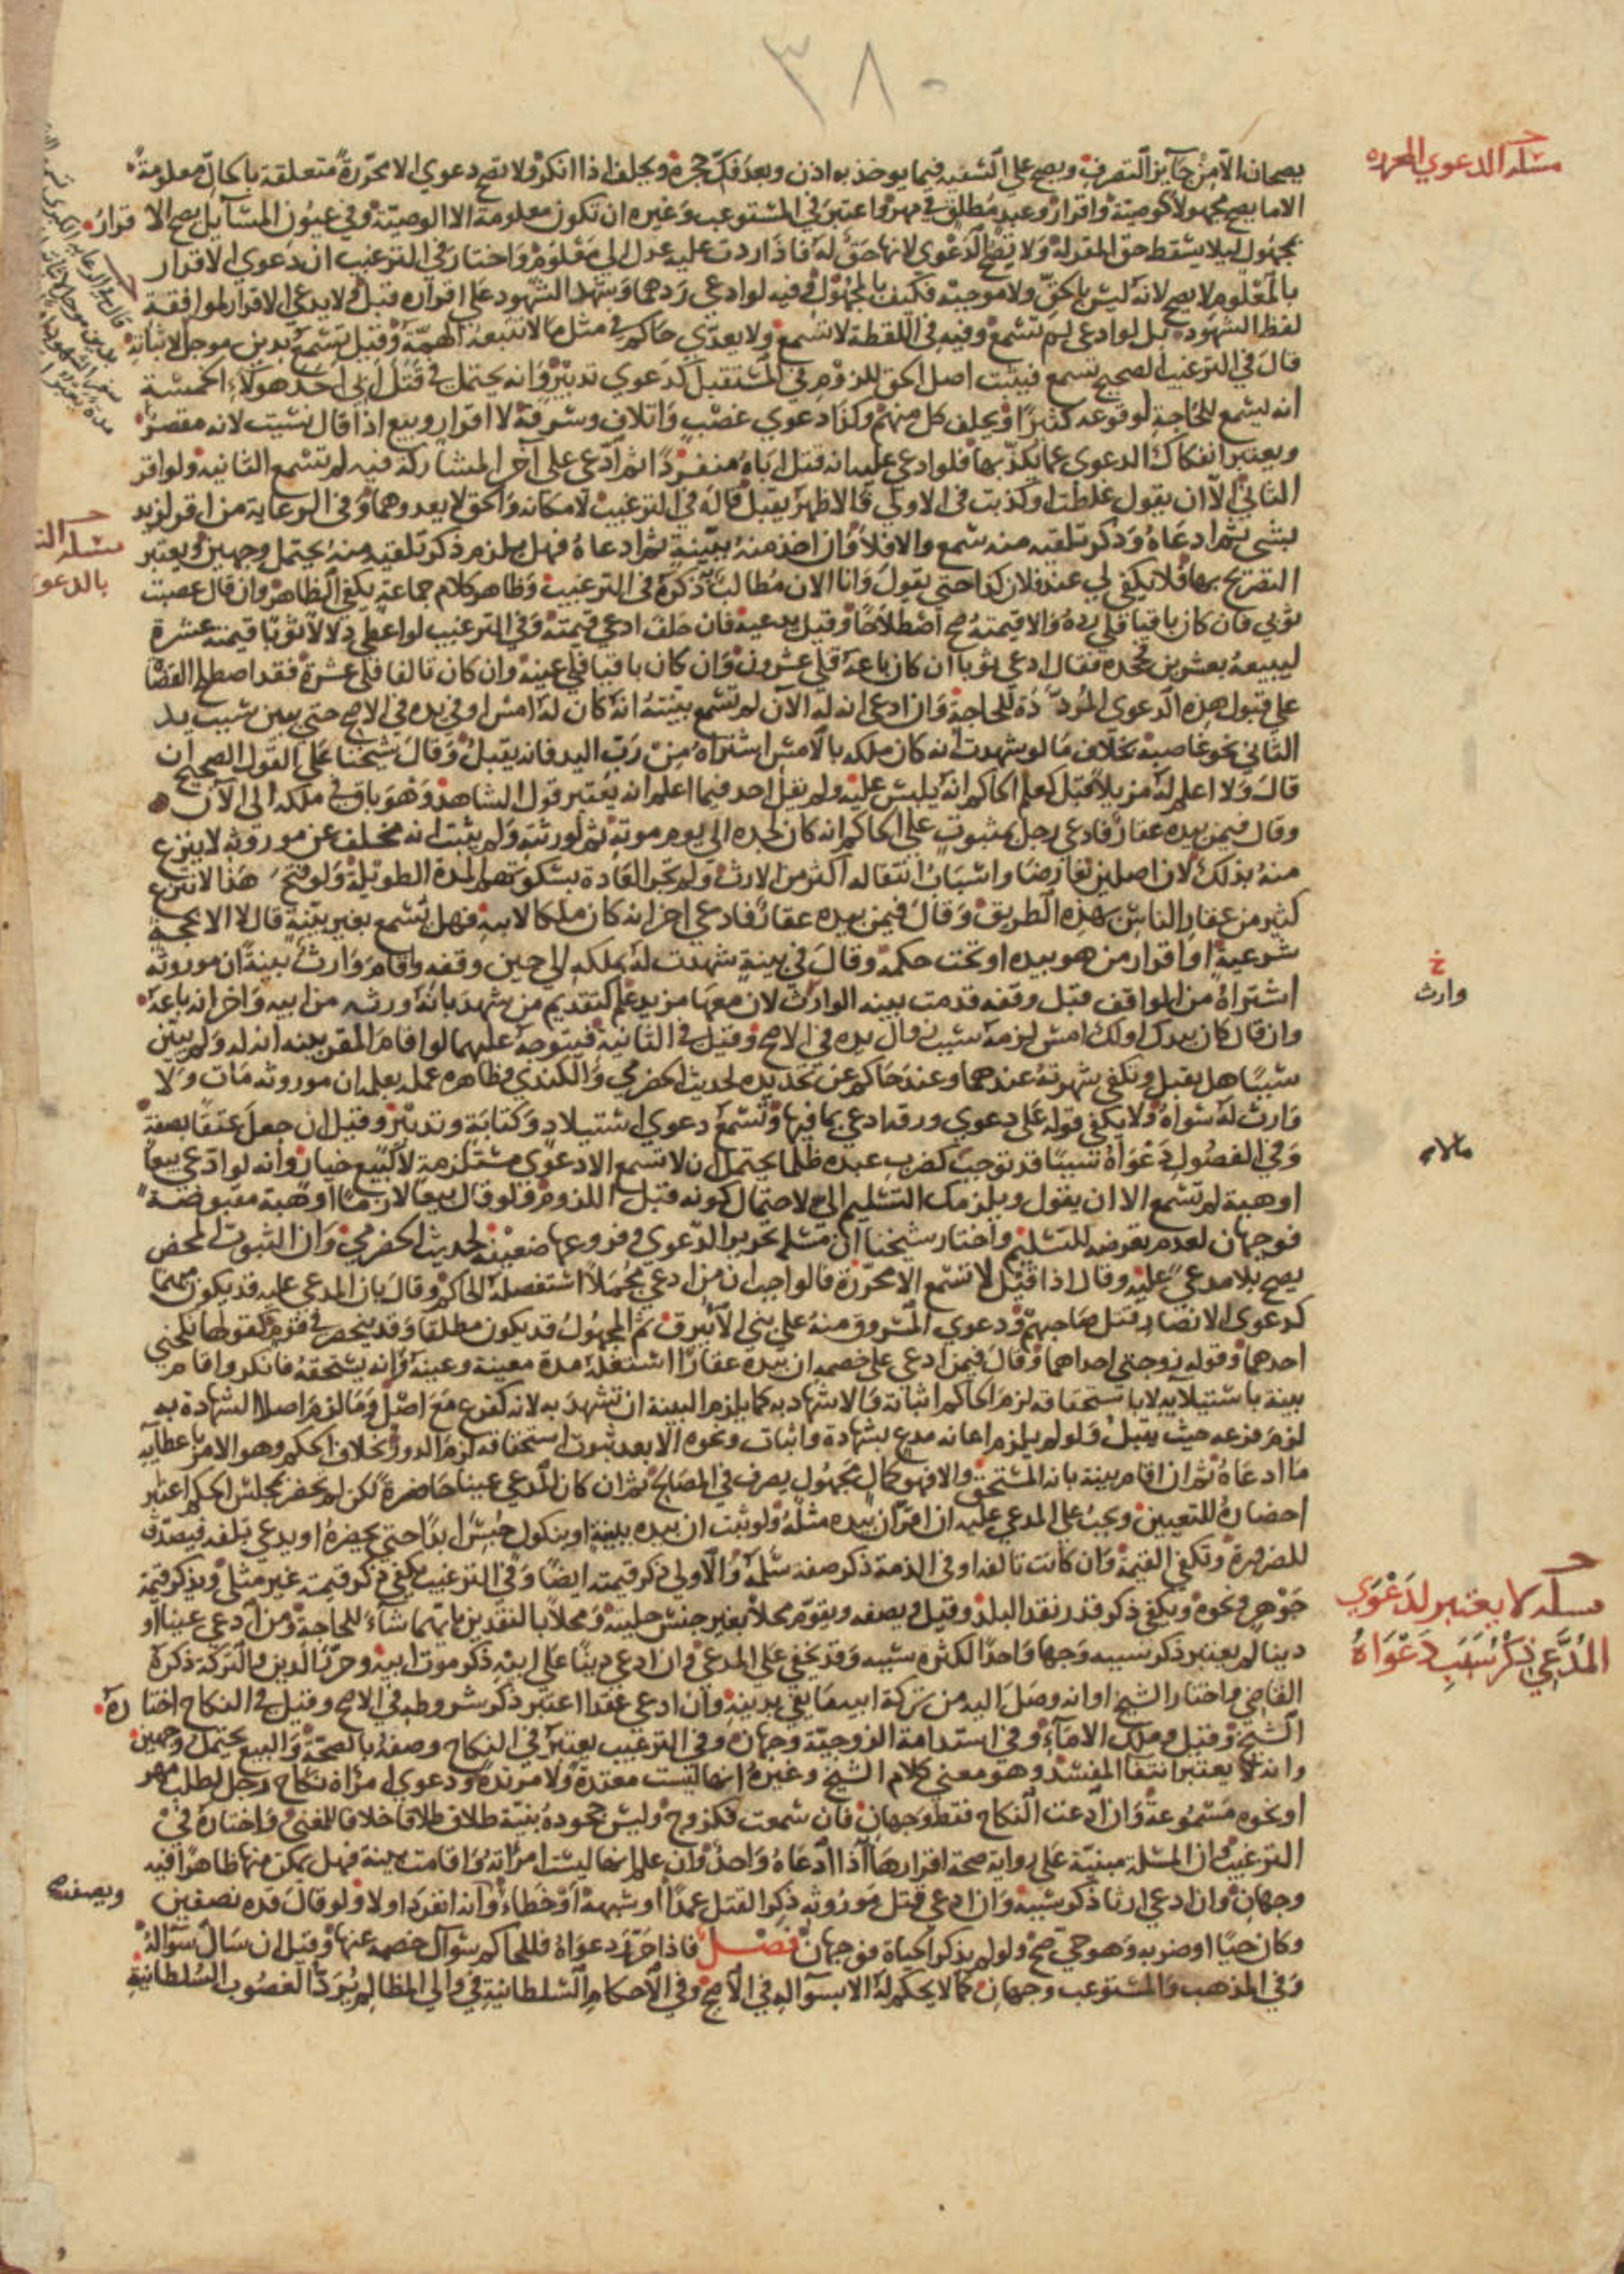 ٣٨٠
مسئلة الدعوى المحررة
يصحان الا من جايز التصرف ويصح على السفيه فيما يوخذ به اذن وبعد فك حجره ويحلف اذا انكر ولا تصح دعوي الا محررة متعلقة بالحال معلومة
الا ما يصح مجهولا كوصية واقرار وعبد مطلق في مهر واعتبر في المستوعب وغيره ان تكون معلومة الا الوصية وفي عيون المسايل يصح الاقرار
بمجهول ليلا يسقط حق المقر له ولا يصح الدعوي لانها حق له فاذا ردت عليه عدل الي معلوم واختار في الترغيب ان دعوي الاقرار
بالمعلوم لا يصح لانه ليس بالحق ولا موجبه فكيف بالمجهول وفيه لو ادعي درهما وشهد الشهود علي اقراره قبل ولا يدعي الاقرار لموافقة
لفظ الشهود بل لو ادعى لم تسمع وفيه في اللقطة لا تسمع ولا يعدي حاكم في مثل ما لا تتبعه الهمة وقيل تسمع بدين موجل لاثباته
قال في الترغيب الصحيح تسمع فيثبت اصل الحق للزوم في المستقبل كدعوي تدبير وانه يحتمل في قتل ابي احد هولاء الخمسة
انه يسمع للحاجة لوقوعه كثيرا ويحلف كل منهم وكذا دعوي غصب واتلاف وسرقة لا اقرار وبيع اذا قال نسيت لانه مقصر
ويعتبر انفكاك الدعوي عما يكذبها فلو ادعي عليه انه قتل اباه منفردا ثم ادعي على اخر المشاركة فيه لم تسمع الثانية ولو اقر
الثاني الا ان يقول غلطت او كذبت في الاولي فالاظهر يقبل قاله في الترغيب لامكانه والحق لا يعدوهما وفي الرعاية من اقر لزيد
بشي ثم ادعاه وذكر تلقيه منه سمع والا فلا وان اخذ منه ببينة ثم ادعاه فهل يلزم ذكر تلقيه منه يحتمل وجهين ويعتبر
التصريح بها فلا يكفي لي عند فلان كذا حتى يقول وانا الان مطالب به ذكره في الترغيب وظاهر كلام جماعة يكفي الظاهر وان قال غصبت
ثوبي فان كان باقيا فلي رده والا قيمته صح اصطلاحا وقيل يدعيه فان حلف ادعي قيمته وفي الترغيب لو اعطي دلالا ثوبا قيمته عشرة
ليبيعه بعشرين فجحده فقال ادعي ثوبا ان كان باعه فلي عشرون وان كان باقيا فلي عينه وان كان تالفا فلي عشرة فقد اصطلح القضاة
علي قبول هذه الدعوي المرددة للحاجة وان ادعى انه له الان لم تسمع بينته انه كان له امس او في يده في الاصح حتي يبين سبب يد
الثاني نحو غاصبة بخلاف ما لو شهدت انه كان ملكه بالامس اشتراه من رب اليد فانه يقبل وقال شيخنا على القول الصحيح ان
قال ولا اعلم له مزيلا قبل كعلم الحاكم انه يلبس عليه ولم يقل احد فيما اعلم انه يعتبر قول الشاهد وهو باق في ملكه الى الان
وقال فيمن بيده عقار فادعي رجل بمثبوت على الحاكم انه كان لجده الى يوم موته ثم لورثته ولم يثبت انه مخلف عن موروثه لا ينزع
منه بذلك لان اصلين تعارضا واسباب انتقاله اكثر من الارث ولم تجر العادة بسكوتهم المدة الطويلة ولو فتح هذا لانتزع
كثير من عقار الناس بهذه الطريق وقال فيمن بيده عقار فادعي اخر انه كان ملكا لابيه فهل تسمع بغير بينة قال لا الا بحجة
شرعية او اقرار من هو بيده او تحت حكمه وقال في بينة شهدت له بملكه الى حين وقفه واقام وارث بينة ان موروثه
اشتراه من الواقف قبل وقفه قدمت بينه الوارث لان معها مزيد علم كتقديم من شهد بانه ورثه من ابيه واخر انه باعه
وان قال كان بيدك او لك امس لزمه سبب زوال يده في الاصح وقيل في الثانية فيتوجه عليهما لو اقام المقر بينه انه له ولم يبين
سببا هل يقبل وتكفي شهرته عندهما وعند حاكم عن تحديده لحديث الحضرمي والكندي وظاهره عمله بعلمه ان موروثه مات ولا
وارث له سواه ولا يكفي قوله على دعوي ورقة ادعي بما فيها وتسمع دعوي استيلاد وكتابة وتدبير وقيل ان جعل عتقا بصفة
وفي الفصول دعواه سببا قد توجب كضرب عبده ظلما يحتمل ان لا تسمع الا دعوي مستلزمة لا كبيع خيار وانه لو ادعي بيعا
او هبة لم تسمع الا ان يقول ويلزمك التسليم الي لاحتمال كونه قبل اللزوم ولو قال بيعا لازما او هبة مقبوضة
فوجهان لعدم تعرضه للتسليم واختار شيخنا ان مسئلة تحرير الدعوي وفروعها ضعيفة لحديث الحضرمي وان الثبوت المحض
يصح بلا مدعي عليه وقال اذا قيل لا تسمع الا محررة فالواجب ان من ادعي مجملا استفصله الحاكم وقال بان المدعي عليه قد يكون مبهما
كدعوى الانصار قتل صاحبهم ودعوي المسروق منه علي بني الابيرق ثم المجهول قد يكون مطلقا وقد ينحصر في قوم كقولها نكحني
احدهما وقوله زوجتي احداهما وقال فيمن ادعي على خصمه ان بيده عقارا استغله مدة معينة وعينه وانه يستحقه فانكر واقام
بينة باستيلايه لا باستحقاقه لزم الحاكم اثباته والاشهاد به كما يلزم البينة ان تشهد به لانه كفرع مع اصل وما لزم اصلا الشهادة به
لزم فرعه حيث يقبل ولو لم يلزم اعانه مدع بشهادة واثبات ونحوه الا بعد ثبوت استحقاقه لزم الدور بخلاف الحكم وهو الامر باعطايه
ما ادعاه ثم ان اقام بينة بانه المستحق والا فهو كمال مجهول يصرف في المصالح ثم ان كان المدعي عينا حاضرة لكن لم يحضر بمجلس الحكم اعتبر
احضاره للتعيين ويجب على المدعي عليه ان اقر ان بيده مثله ولو ثبت ان بيده ببينة او بنكول حبس ابدا حتى يحضره او يدعي تلفه فيصدق
للضرورة وتكفي القيمة وان كانت تالفة او في الذمة ذكر صفة سلم والاولي ذكر قيمته ايضا وفي الترغيب يكفي ذكر قيمته غير مثلي ويذكر قيمة
جوهر ونحوه ويكفي ذكر قدر نقد البلد وقيل ويصفه ويقوم محلا بغير جنس حليته ومحلا بالنقدين بايهما شاء للحاجة ومن ادعي عينا او
دينا لم يعتبر ذكر سببه وجها واحدا لكثرة سببه وقد تخفي على المدعي وان ادعي دينا على ابيه ذكر موت ابيه وحرر الدين والتركة ذكره
القاضي واختار الشيخ او انه وصل اليه من تركة ابيه ما يفي بدينه وان ادعى عقدا اعتبر ذكر شروطه في الاصح وقيل في النكاح اختاره
الشيخ وقيل وملك الاماء وفي استدامة الزوجية وجهان وفي الترغيب يعتبر في النكاح وصفه بالصحة والبيع يحتمل وجهين
وانه لا يعتبر انتفا المفسد وهو معني كلام الشيخ وغيره انها ليست معتدة ولا مرتدة ودعوي امراة نكاح رجل لطلب مهر
او نحوه مسموعة وان ادعت النكاح فقط وجهان فان سمعت فكزوج وليس جحوده بنية طلاق طلاقا خلافا للمغني واختاره في
الترغيب وان المسئلة مبنية على رواية صحة اقرارها اذا ادعاه واحد وان علم انها ليست امراته واقامت بينة فهل يمكن منها ظاهرا فيه
وجهان وان ادعي ارثا ذكر سببه وان ادعي قتل موروثه ذكر القتل عمدا او شبهه او خطاء وانه انفرد او لا ولو قال قده نصفين
وكان حيا او ضربه وهو حي صح ولو لم يذكر الحياة فوجهان فصل فاذا حرر دعواه فللحاكم سوال خصمه عنها وقيل ان سال سواله
وفي المذهب والمستوعب وجهان كما لا يحكم له الا بسواله في الاصح وفي الاحكام السلطانية في والي المظالم يرد الغصوب السلطانية
بالدعو
خ
وارث
مسئلة لا يعتبر لدعوي
المدعي ذكر سبب دعواه